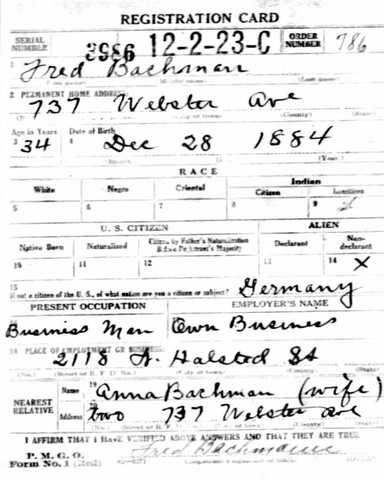 REGISTRATION CARD
SERIAL NUMBER 3986 12-2-23-C ORDER NUMBER 786
1 Fred Bachman
(Last name)
2 PERMANENT HOME ADDRESS:
737 Webster Ave
(No.) (County) (State)
Age in Years Date of Birth
3 34 4 Dec 28 1884
(Year.)
RACE
White Negro Oriental Indian
Citizen
5 6 7 8 9
U. S. CITIZEN ALIEN
Native Born Naturalized Citizen by Father's Naturalization Declarant Non-declarant
10 11 12 13 14 X
15 If not a citizen of the U. S., of what nation are you a citizen or subject? Germany
PRESENT OCCUPATION EMPLOYER'S NAME
Business Man Own Business
18 PLACE OF EMPLOYMENT OR BUSINESS:
2118 N. Halsted St
(No.) (County) (State)
NEAREST RELATIVE Name 19 Anna Bachman (wife)
Address 20 two 737 Webster Ave
(No.) (State)
I AFFIRM THAT I HAVE VERIFIED ABOVE ANSWERS AND THAT THEY ARE TRUE
P. M. G. O.
Form No. 1 (Red) Fred Bachmann